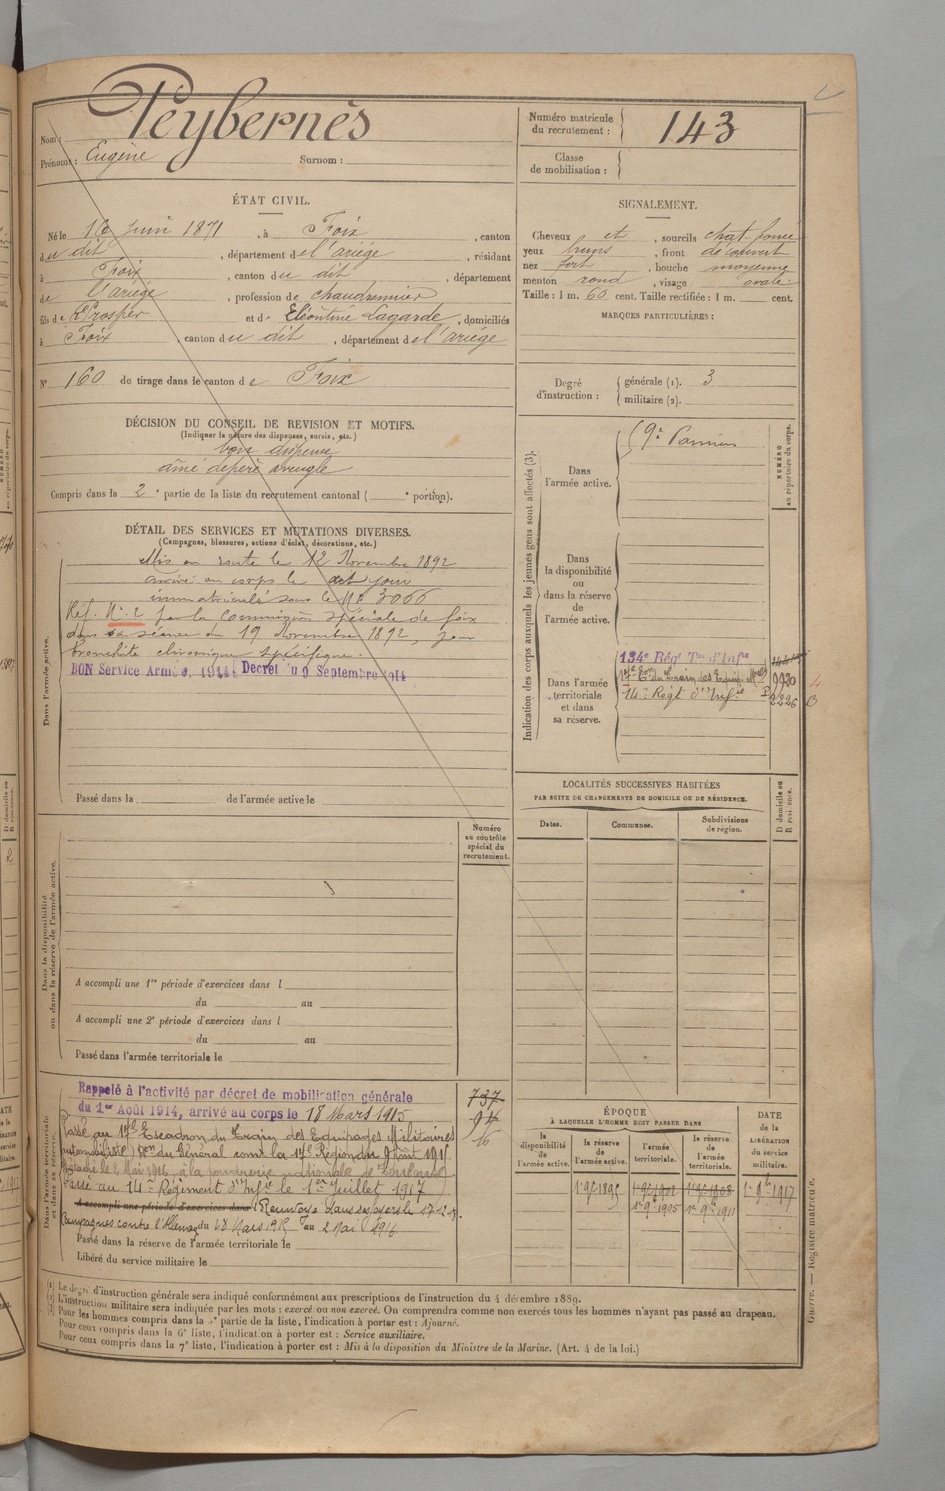 Nom : Peybernès
Prénoms : Eugène Surnom :
Numéro matricule du recrutement : 143
Classe de mobilisation :
ÉTAT CIVIL.
Né le 16 juin 1871, à Foix, canton
du dit, département de l'ariège, résidant
à Foix, canton du dit, département
de l'ariège, profession de chaudronnier
fils de Prosper et de Eléontine Lagarde, domiciliés
à Foix, canton du dit, département de l'ariège
N° 160 de tirage dans le canton de Foix
SIGNALEMENT.
Cheveux et, sourcils chat. foncé
yeux bruns, front découvert
nez fort, bouche moyenne
menton rond, visage ovale.
Taille : 1 m. 60 cent. Taille rectifiée : 1 m. cent.
MARQUES PARTICULIÈRES :
Degré d'instruction :
générale (1). 3
militaire (2).
DÉCISION DU CONSEIL DE REVISION ET MOTIFS.
(Indiquer la nature des dispenses, sursis, etc.)
bon dispensé
aîné de père aveugle
Compris dans la 2e partie de la liste du recrutement cantonal ( e portion).
DÉTAIL DES SERVICES ET MUTATIONS DIVERSES.
(Campagnes, blessures, actions d'éclat, décorations, etc.)
Dans l'armée active.
Mis en route le 12 Novembre 1892
arrivé au corps le dit jour
immatriculé sous le No 3066
Réf. No. 2 par la Commission spéciale de foix
dans sa séance du 19 Novembre 1892, pour
bronchite chronique spécifique.
BON Service Armé, 1914. Decret du 9 Septembre 1914
Passé dans la de l'armée active le
Indication des corps auxquels les jeunes gens sont affectés (3).
NUMÉRO au répertoire du corps.
Dans l'armée active.
9e Pamiers
Dans la disponibilité ou dans la réserve de l'armée active.
Dans l'armée territoriale et dans sa réserve.
134e Régt Tal d'Infie
17e Eon du Train des Equip. Mres 9920 4
14e Régt d'Infie 2226 B
LOCALITÉS SUCCESSIVES HABITÉES
PAR SUITE DE CHANGEMENTS DE DOMICILE OU DE RÉSIDENCE.
Dates. Communes. Subdivisions de région.
D domicile ou R résidence.
Numéro au contrôle spécial du recrutement.
Dans la disponibilité ou dans la réserve de l'armée active.
A accompli une 1re période d'exercices dans l
du au
A accompli une 2e période d'exercices dans l
du au
Passé dans l'armée territoriale le
Dans l'armée territoriale et dans sa réserve.
Rappelé à l'activité par décret de mobilisation générale 737
du 1er Août 1914, arrivé au corps le 18 Mars 1915 94
Passé au 17e Escadron du Train des Equipages Militaires 16
(automobiliste) Don du Général comt la 17e Région du 9 Août 1915
Détaché le 2 Mai 1916, à la poudrerie nationale de Toulouse
Passé au 14e Régiment d'Infie le 1er Juillet 1917
A accompli une période d'exercices dans Renvoyé dans ses foyers le
Campagnes contre l'Allemagne du 18 Mars 1915 au 2 Mai 1916
Passé dans la réserve de l'armée territoriale le
Libéré du service militaire le
ÉPOQUE
À LAQUELLE L'HOMME DOIT PASSER DANS
la disponibilité de l'armée active.
la réserve de l'armée active.
l'armée territoriale.
la réserve de l'armée territoriale.
DATE de la LIBÉRATION du service militaire.
1er 9bre 1895 1er 9bre 1902 1er 9bre 1908 1er 9bre 1917
1er 9bre 1905 1er 9bre 1911
(1) Le degré d'instruction générale sera indiqué conformément aux prescriptions de l'instruction du 4 décembre 1889.
(2) L'instruction militaire sera indiquée par les mots : exercé ou non exercé. On comprendra comme non exercés tous les hommes n'ayant pas passé au drapeau.
(3) Pour les hommes compris dans la 5e partie de la liste, l'indication à porter est : Ajourné.
Pour ceux compris dans la 6e liste, l'indication à porter est : Service auxiliaire.
Pour ceux compris dans la 7e liste, l'indication à porter est : Mis à la disposition du Ministre de la Marine. (Art. 4 de la loi.)
Guerre. — Registre matricule.